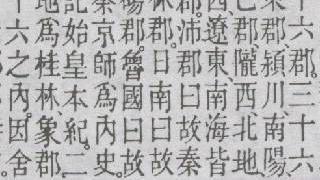 六郡。三十六
郡、潁川、南陽、
郡、隴西、北地、
西遼東、南海皆
沛郡曰故秦
郡。曰南曰故
郡魯國曰故
京師爲內史。
秦始皇本紀。二
記爲桂林、象郡。
六之內因舍